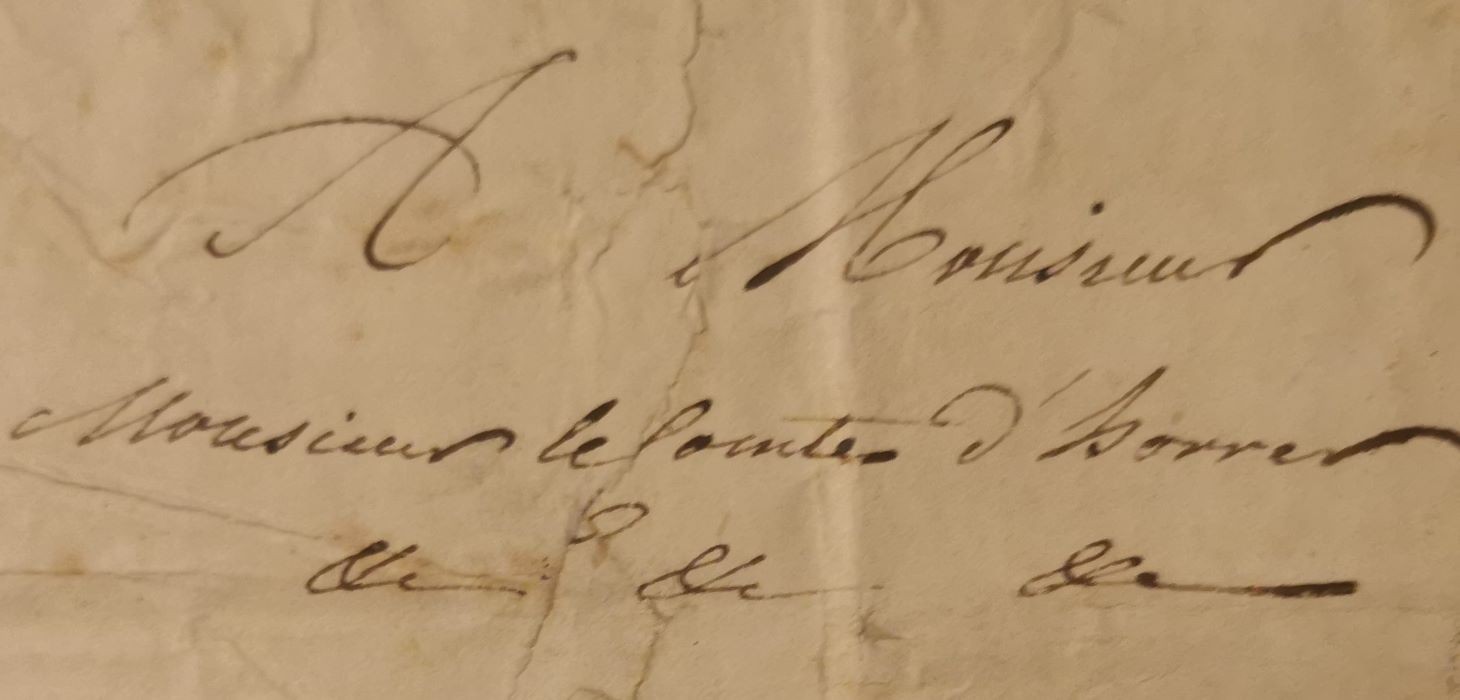 A Monsieur
Monsieur le Comte d'Horrer
&c &c &c